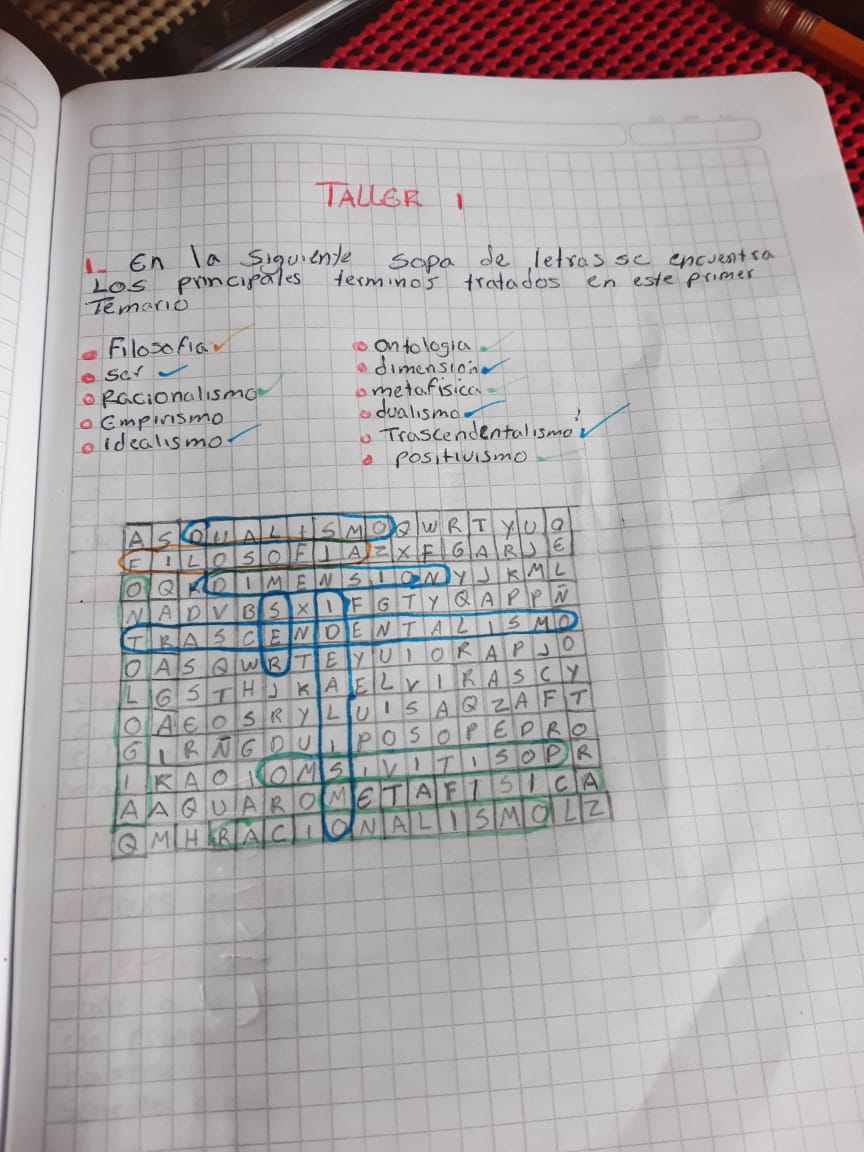 TALLER 1
1. En la siguiente sopa de letras se encuentra
Los principales terminos tratados en este primer
Temario
Filosofia
ser
Racionalismo
Empirismo
idealismo
ontologia
dimension
metafisica
dualismo
Trascendentalismo
positivismo
A S D U A L I S M O Q W R T Y U O
F I L O S O F I A Z X F G A R J E
O Q R D I M E N S I O N Y J K M L
N A D V B S X I F G T Y Q A P P Ñ
T R A S C E N D E N T A L I S M O
O A S Q W R T E Y U I O R A P J O
L G S T H J K A E L V I R A S C Y
O A E O S R Y L U I S A Q Z A F T
G I R Ñ G D U I P O S O P E D R O
I K A O I O M S I V I T I S O P R
A A Q U A R O M E T A F I S I C A
Q M H R A C I O N A L I S M O L Z